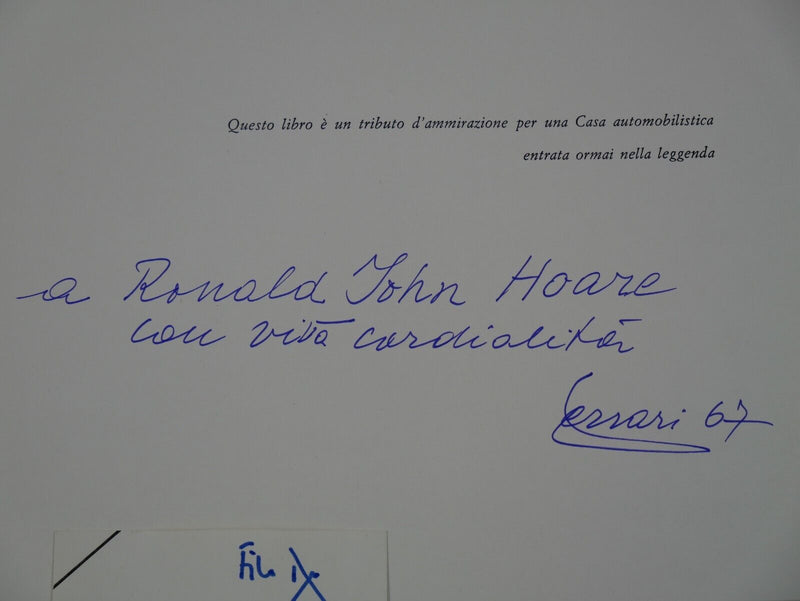 Questo libro è un tributo d'ammirazione per una Casa automobilistica
entrata ormai nella leggenda
a Ronald John Hoare
con viva cordialità
Ferrari 67